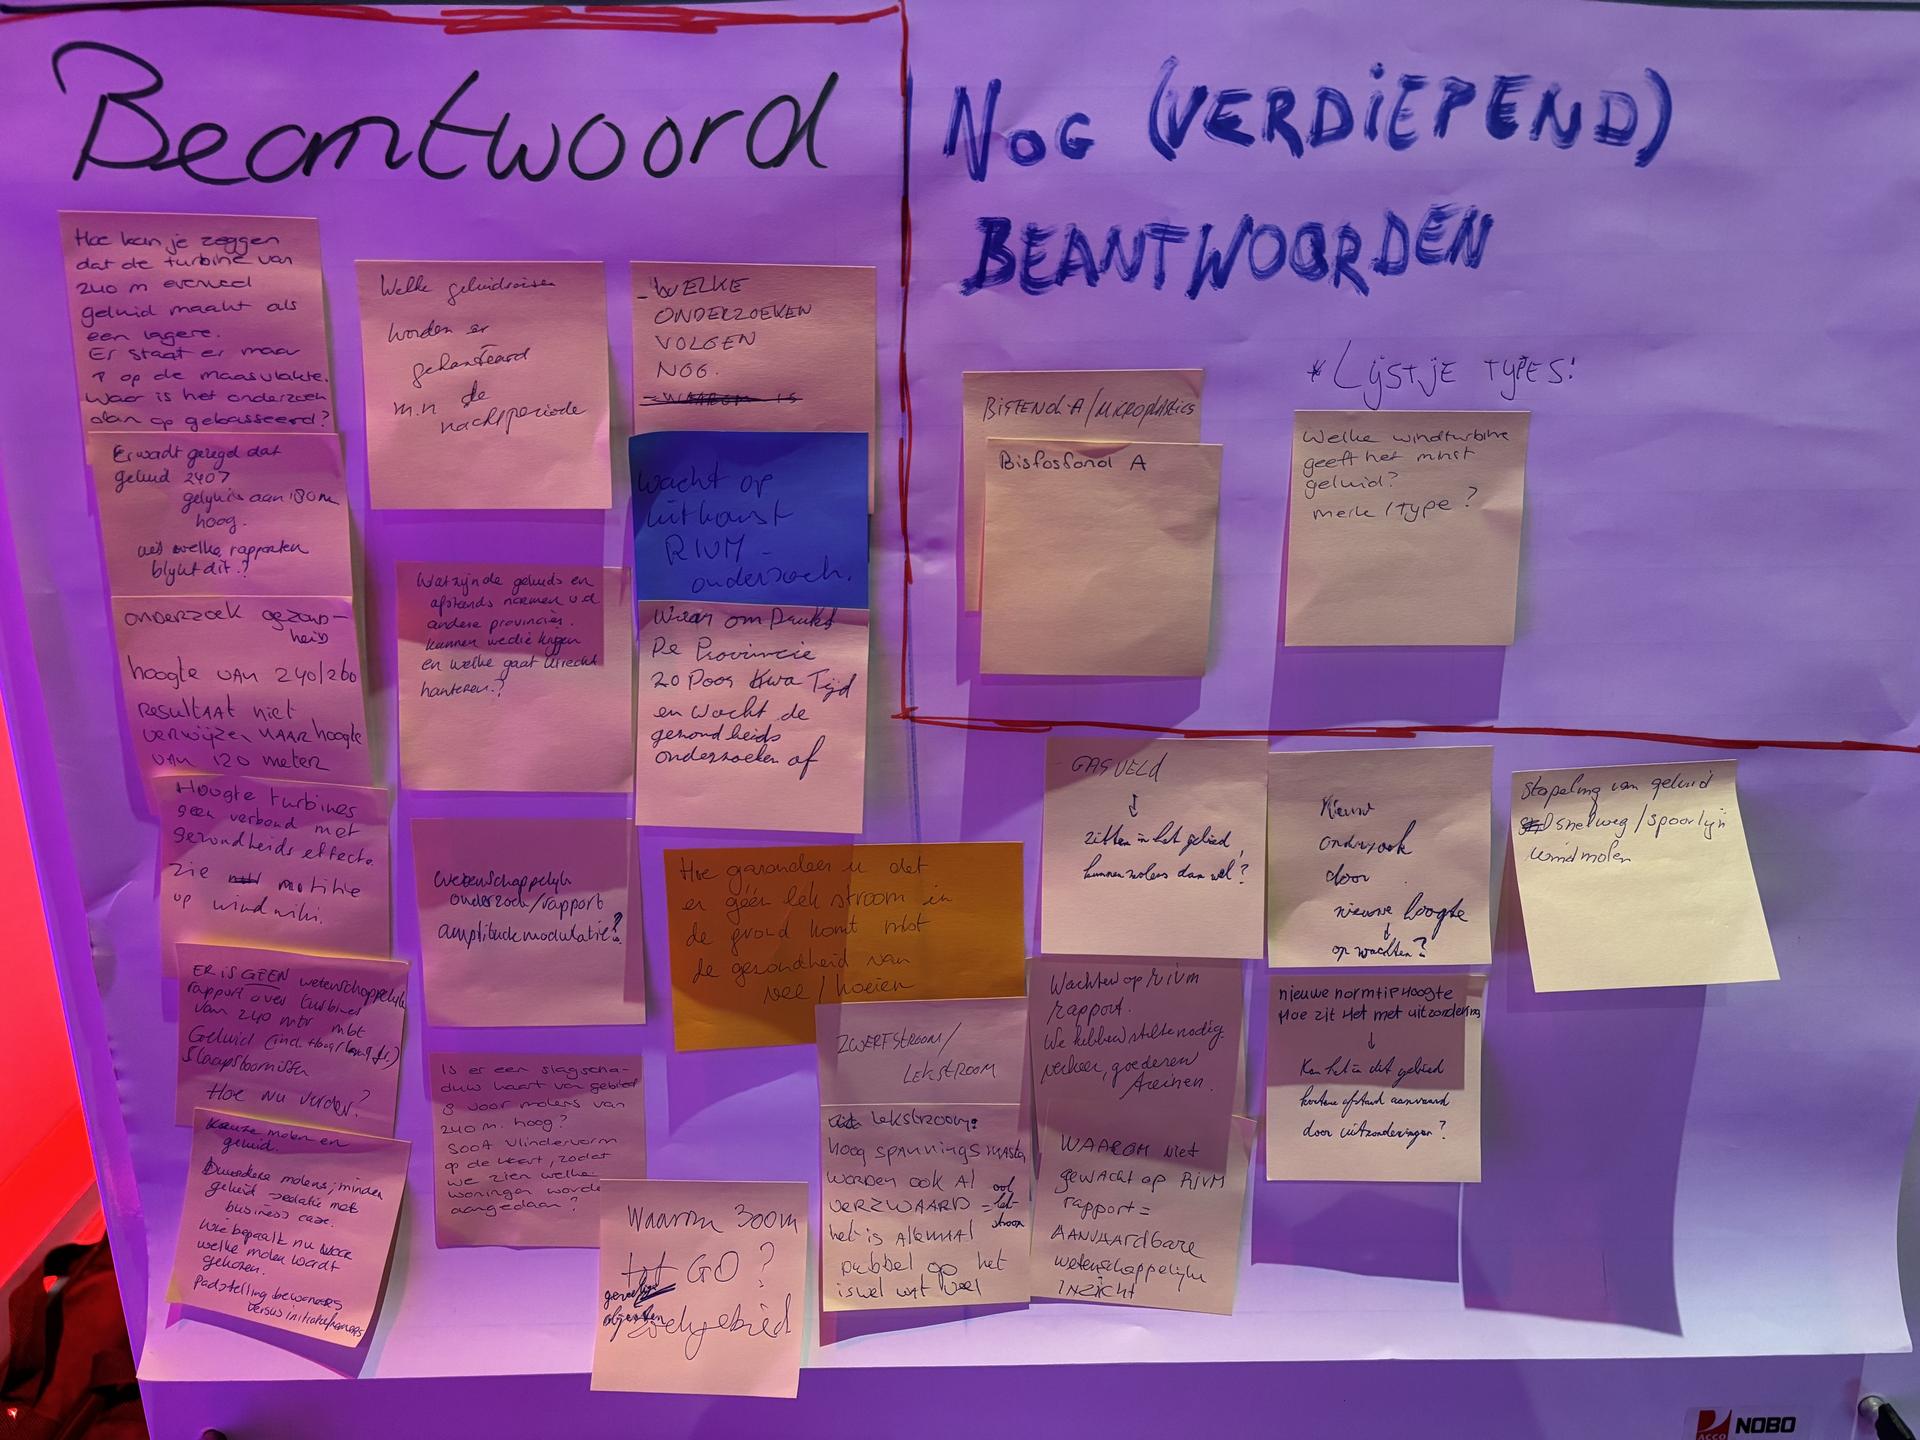 Beantwoord
Hoe kan je zeggen
dat de turbine van
240 m evenveel
geluid maakt als
een lagere.
Er staat er maar
1 op de maasvlakte.
Waar is het onderzoek
dan op gebasseerd?
Er wordt gezegd dat
geluid 240?
gelijk is aan 180m
hoog.
uit welke rapporten
blijkt dit?
onderzoek gezond-
heid
hoogte van 240/260
resultaat niet
verwijzen naar hoogte
van 120 meter
Hoogte turbines
geen verband met
gezondheids effecte.
zie motitie
op windwiki.
ER is GEEN wetenschappelijk
rapport over turbines
van 240 mtr mbt
Geluid (incl. Hoog/laag fr.)
Slaapstoornissen
Hoe nu verder?
Keuze molen en
geluid.
Duurdere molens; minder
geluid → relatie met
business case.
Wie bepaalt nu
welke molen wordt
gekozen.
padstelling bewoners
versus initiatiefnemers
Welke geluidseisen
worden er
gehanteerd
m.n de
nachtperiode
Wat zijn de geluids en
afstands normen v.d
andere provincies.
kunnen we die krijgen
en welke gaat Utrecht
hanteren?
Wetenschappelijk
onderzoek/rapport
amplitudemodulatie?
Is er een slagscha-
duw kaart van gebied
8 voor molens van
240 m. hoog?
Soort vlindervorm
op de kaart, zodat
we zien welke
woningen worde
aangedaan?
- WELKE
ONDERZOEKEN
VOLGEN
NOG.
wacht op
uitkomst
RIVM -
onderzoek.
Waar om Drukt
De Provincie
zo Door Kwa Tijd
en wacht de
gezondheids
onderzoeken af
Hoe garandeer u dat
er géén lek stroom in
de grond komt mbt
de gezondheid van
vee/koeien
ZWERFSTROOM/
LEKSTROOM
lekstroom:
hoog spannings masten
worden ook al
verzwaard = ook
lek-
stroom
het is allemaal
dubbel op het
is wel wat veel
Waarom 300m
tot GO?
gevoelige
objecten
zoekgebied
NOG (VERDIEPEND)
BEANTWOORDEN
BISFENOL-A/MICROPLASTICS
Bisfosfonol A
* Lijstje types!
Welke windturbine
geeft het minst
geluid?
merk/type?
GASVELD
↓
zitten in het gebied,
kunnen molens dan wel?
Nieuw
onderzoek
door
nieuwe hoogte
↓
op wachten?
Stapeling van geluid
snelweg/spoorlijn
windmolen
Wachten op rivm
rapport.
We hebben stilte nodig
verkeer, goederen
treinen.
WAAROM niet
gewacht op RIVM
rapport =
AANVAARDBARE
wetenschappelijke
INZICHT
nieuwe norm tiphoogte
Hoe zit Het met uitzondering
↓
Kan het in dit gebied
kortere afstand aanvaard
door uitzonderingen?
ACCO
NOBO